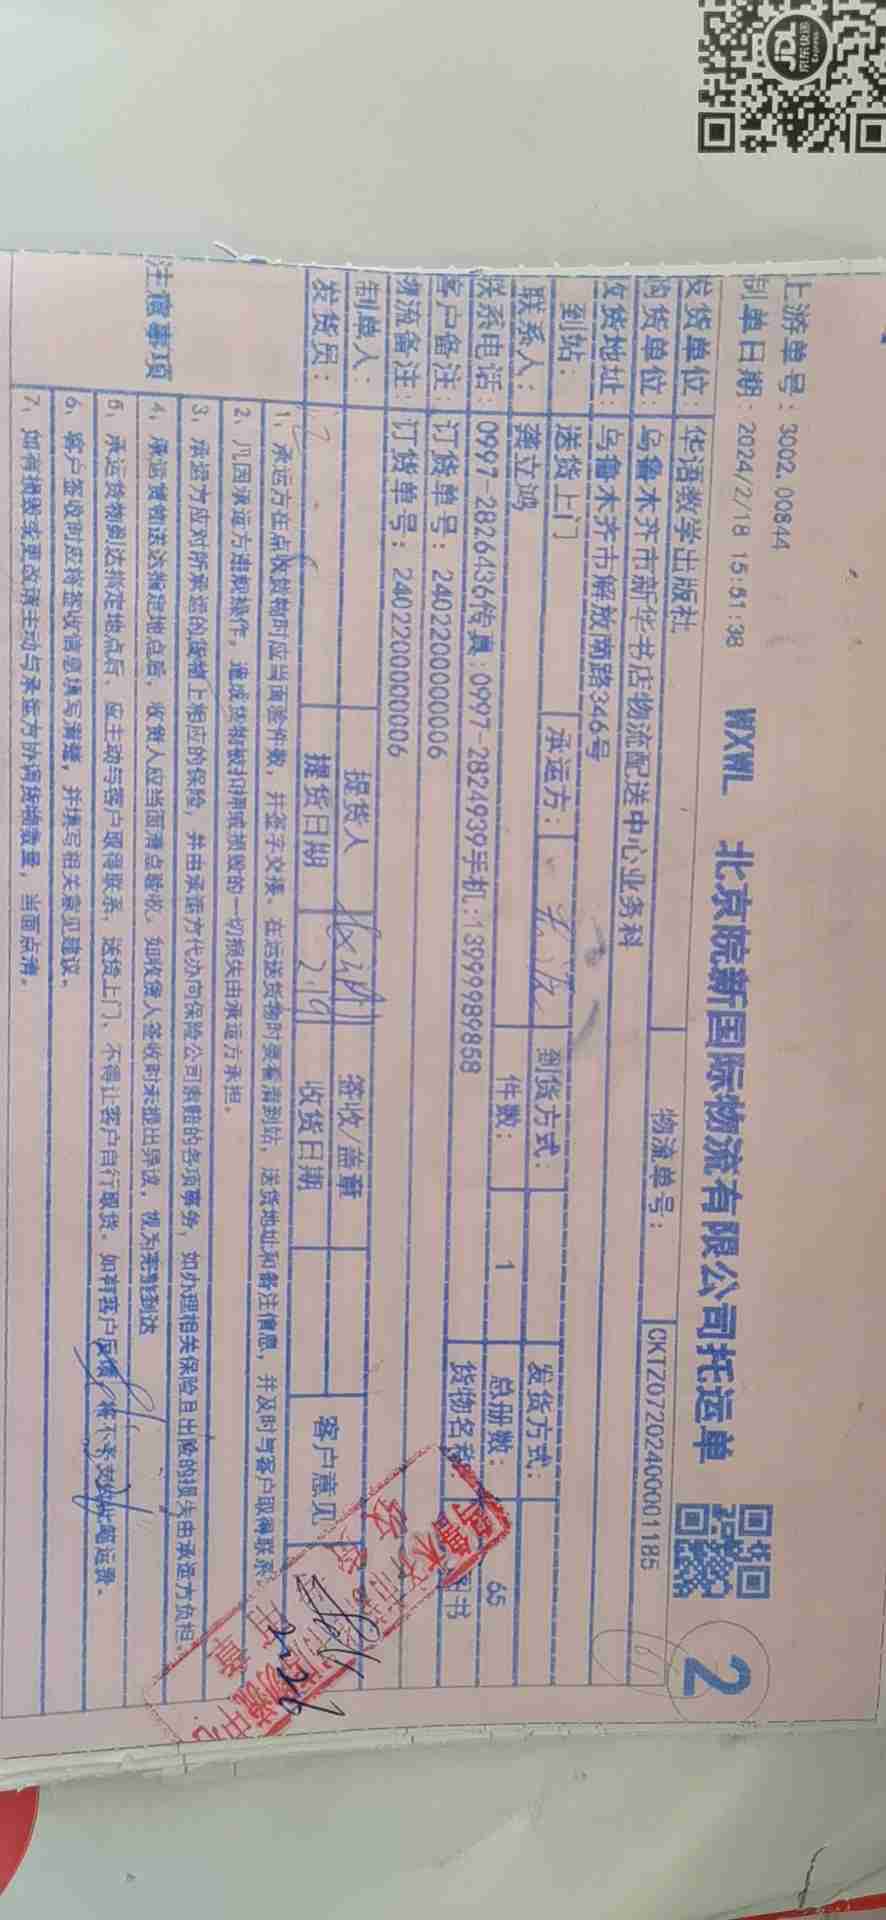 JDL
京东快递
Express
上游单号：3002.00844
制单日期：2024/2/18 15:51:38 WXWL 北京皖新国际物流有限公司托运单 2
发货单位：华语教学出版社 物流单号： CKTZ07202400001185
购货单位：乌鲁木齐市新华书店物流配送中心业务科
收货地址：乌鲁木齐市解放南路346号
到站：送货上门 承运方： 到货方式： 发货方式：
联系人：龚立鸿 件数： 1 总册数： 65
联系电话：0997-2826436传真:0997-2824939手机:13999989858 货物名称 图书
客户备注：订货单号：2402200000006
物流备注：订货单号：2402200000006
制单人： 提货人 签收/盖章 客户意见
发货员： 提货日期 2.19 收货日期
注意事项
1、承运方在点收货物时应当面验件数，并签字交接。在运送货物时要看清到站，送货地址和备注信息，并及时与客户取得联系。
2、凡因承运方违规操作，造成货物被扣押或损毁的一切损失由承运方承担。
3、承运方应对所承运的货物上相应的保险，并由承运方代办向保险公司索赔的各项事务，如办理相关保险且出险的损失由承运方负担。
4、承运货物送达指定地点后，收货人应当面清点验收，如收货人签收时未提出异议，视为完整到达
5、承运货物到达指定地点后，应主动与客户取得联系，送货上门，不得让客户自行取货。如有客户反馈，将不予支付此笔运费。
6、客户签收时应将签收信息填写清楚，并填写相关意见建议。
7、如有损毁或更改请主动与承运方协商货物数量，当面点清。